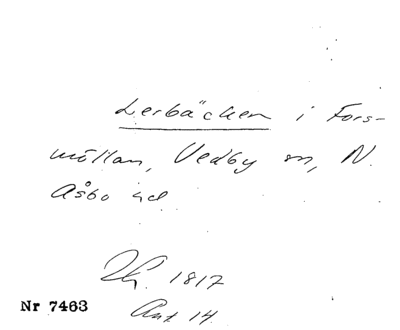 Lerbäcken i Fors-
möllan, Vedby sn, N.
Åsbo hd
1817
Nr 7463
Akt 14.